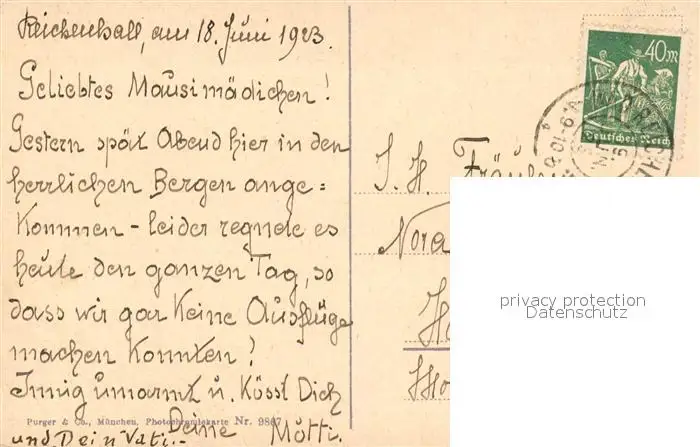 Reichenhall, am 18. Juni 1923.
Geliebtes Mausimädichen!
Gestern spät Abend hier in den
herrlichen Bergen ange=
kommen - leider regnete es
heute den ganzen Tag, so
dass wir gar keine Ausflüge
machen konnten!
Innig umarmt u. küsst Dich
Deine Mutti.
und Dein Vati.-
Purger & Co., München. Photochromiekarte Nr. 9867
40 M
Deutsches Reich
I. H. Fräul
Nora
privacy protection
Datenschutz